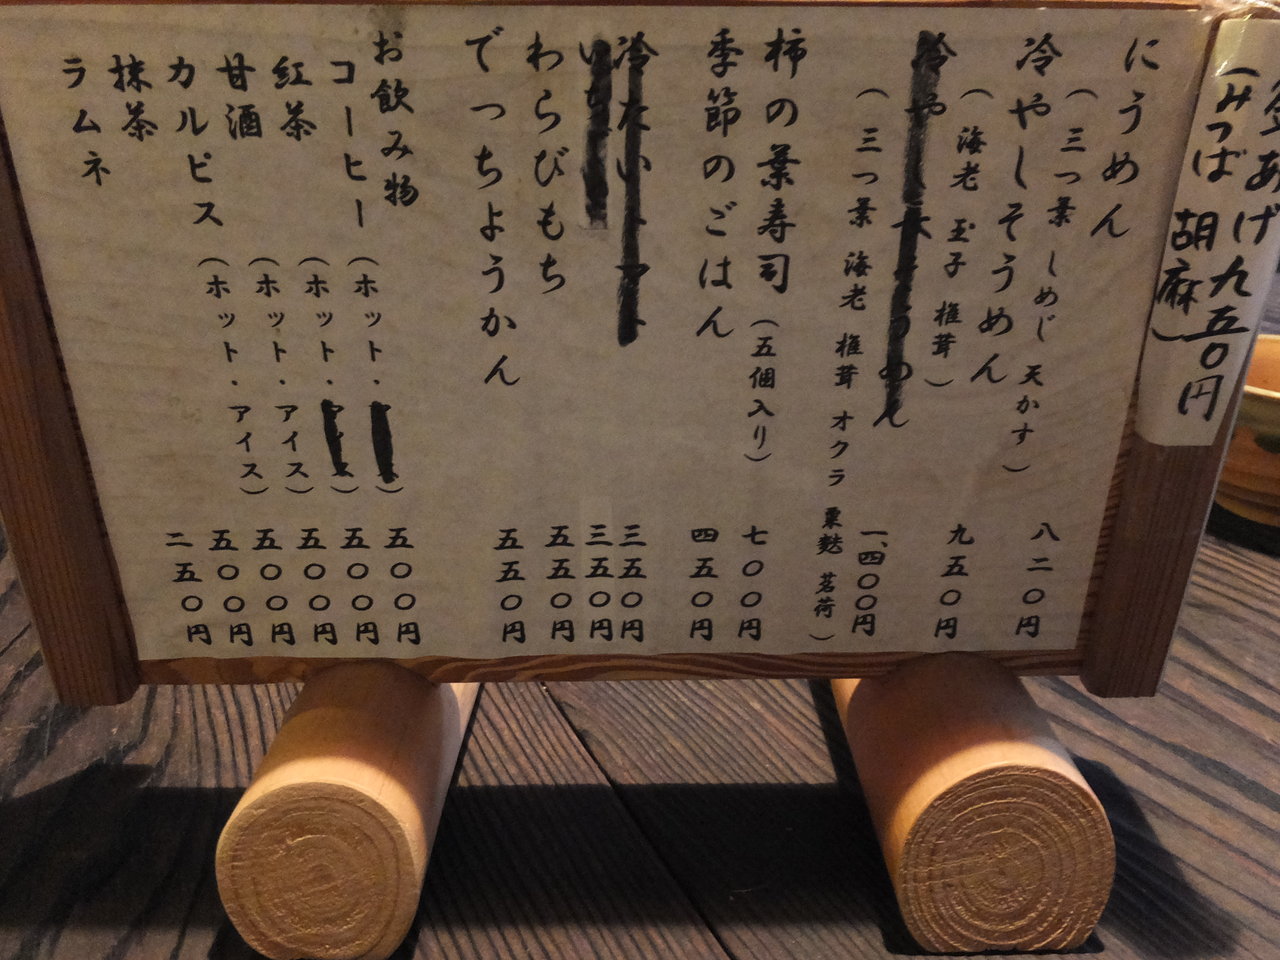 あげ 九五〇円
(みつば 胡麻)
にうめん 八二〇円
(三つ葉 しめじ 天かす)
冷やしそうめん 九五〇円
(海老 玉子 椎茸)
冷やし そうめん 一、四〇〇円
(三つ葉 海老 椎茸 オクラ 粟麩 茗荷)
柿の葉寿司 (五個入り) 七〇〇円
季節のごはん 四五〇円
冷たい 三五〇円
三五〇円
わらびもち 五五〇円
でっちようかん 五五〇円
お飲み物
コーヒー (ホット・) 五〇〇円
紅茶 (ホット・) 五〇〇円
甘酒 (ホット・アイス) 五〇〇円
カルピス (ホット・アイス) 五〇〇円
抹茶 五〇〇円
ラムネ 二五〇円